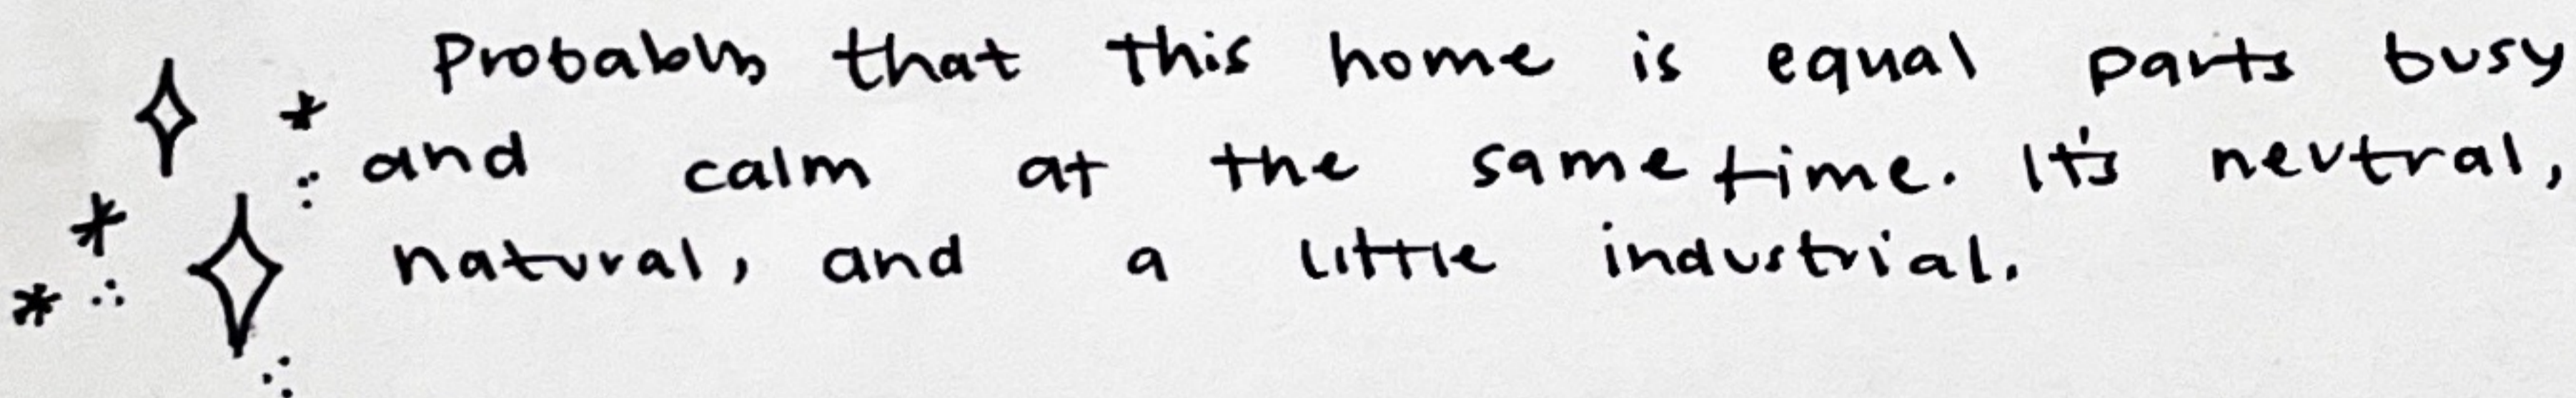 Probably that this home is equal parts busy
and calm at the same time. It's neutral,
natural, and a little industrial.